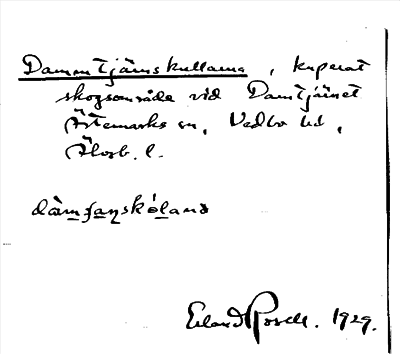 Dammtjärnskullarna, kuperat
skogsområde vid Damtjärnet
Ärtemarks sn, Vedbo hd,
Älvsb. l.
Erland Rosell. 1929.